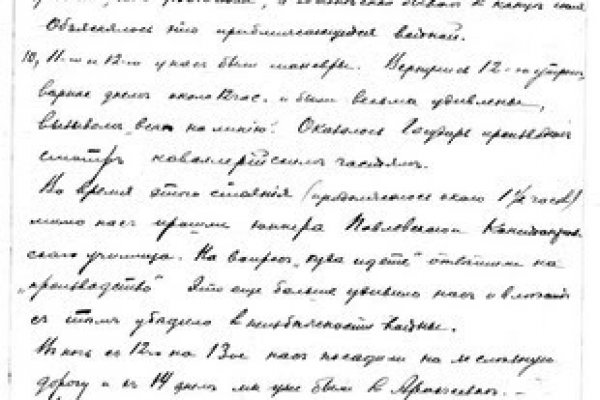 Объяснялось это приближающейся войной.
10, 11-го и 12-го у нас были маневры. Вернулись 12-го утром,
вернее днем около 12 час. и были весьма удивлены,
вызовом "всех на линию". Оказалось Государь производит
смотр кавалерийским частям.
Во время этого стояния (продолжалось около 1 1/2 часов)
мимо нас прошли юнкера Павловского
училища. На вопрос "куда идете" ответили на
"производство" Это еще больше удивило нас и
с тем убедило в неизбежности войны.
В ночь с 12го на 13ое нас посадили на железную
дорогу и 14 днем мы уже были в